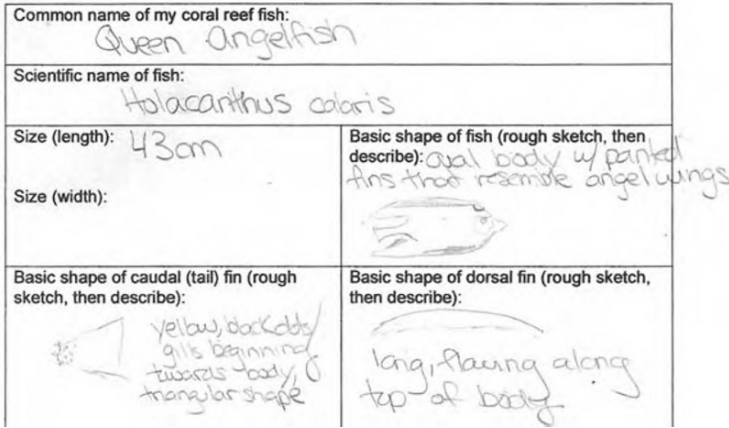 Common name of my coral reef fish:
Queen Angelfish
Scientific name of fish:
Holacanthus colaris
Size (length): 43cm
Size (width):
Basic shape of fish (rough sketch, then
describe): oval body w/ panted
fins that resemble angel wings
Basic shape of caudal (tail) fin (rough
sketch, then describe):
yellow, black dots,
gills beginning
towards body,
triangular shape
Basic shape of dorsal fin (rough sketch,
then describe):
long, flowing along
top of body